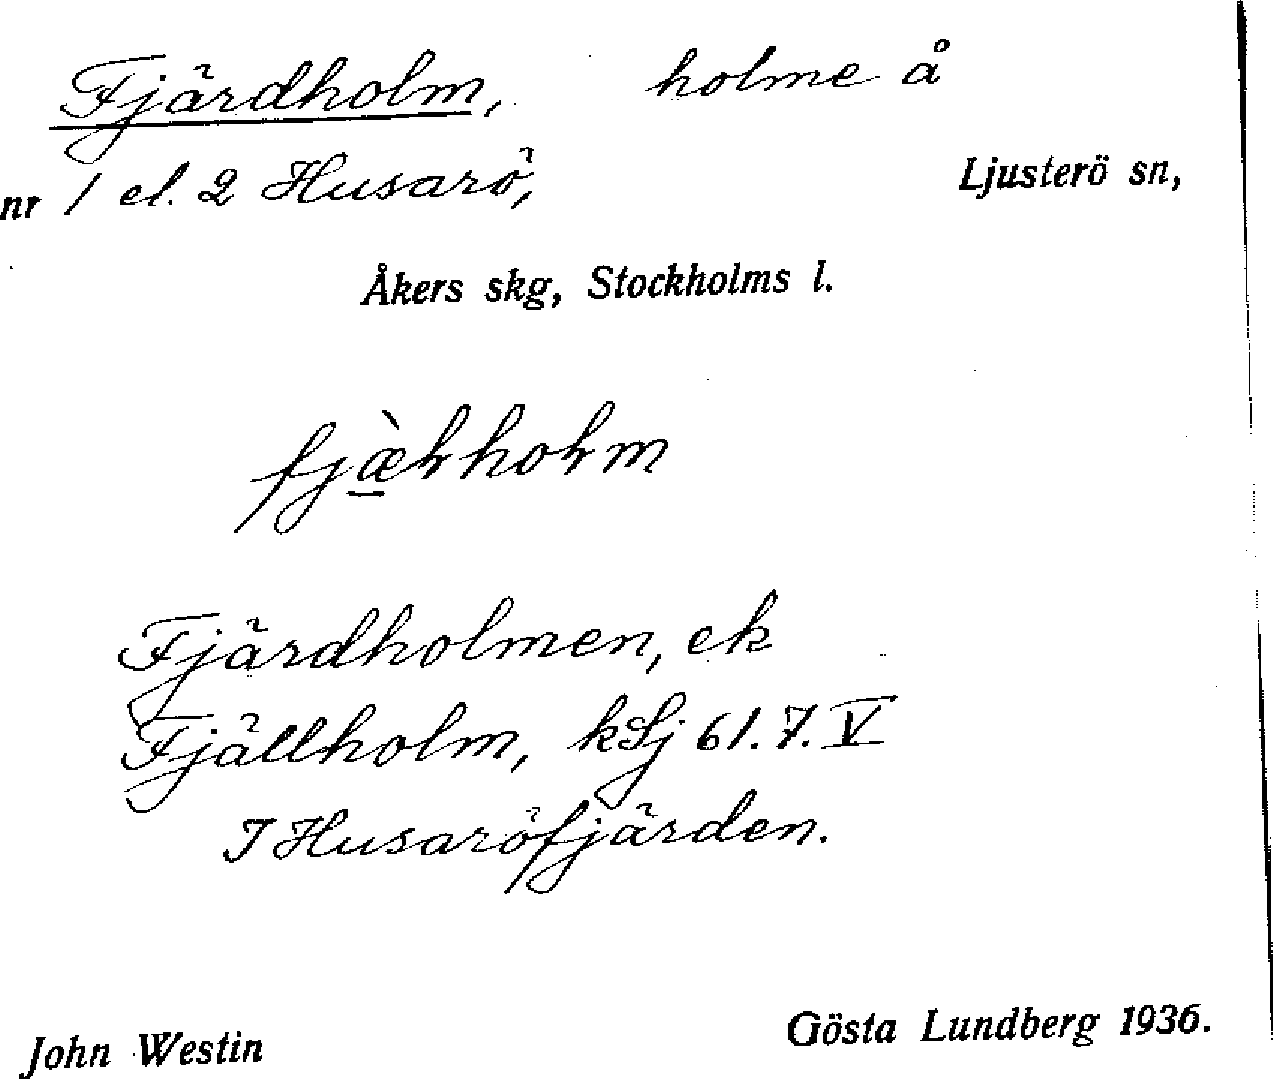 Fjärdholm, holme å
nr 1 el. 2 Husarö, Ljusterö sn,
Åkers skg, Stockholms l.
Fjärdholmen, ek
Fjällholm, kLj 61.7.V
I Husaröfjärden.
John Westin Gösta Lundberg 1936.